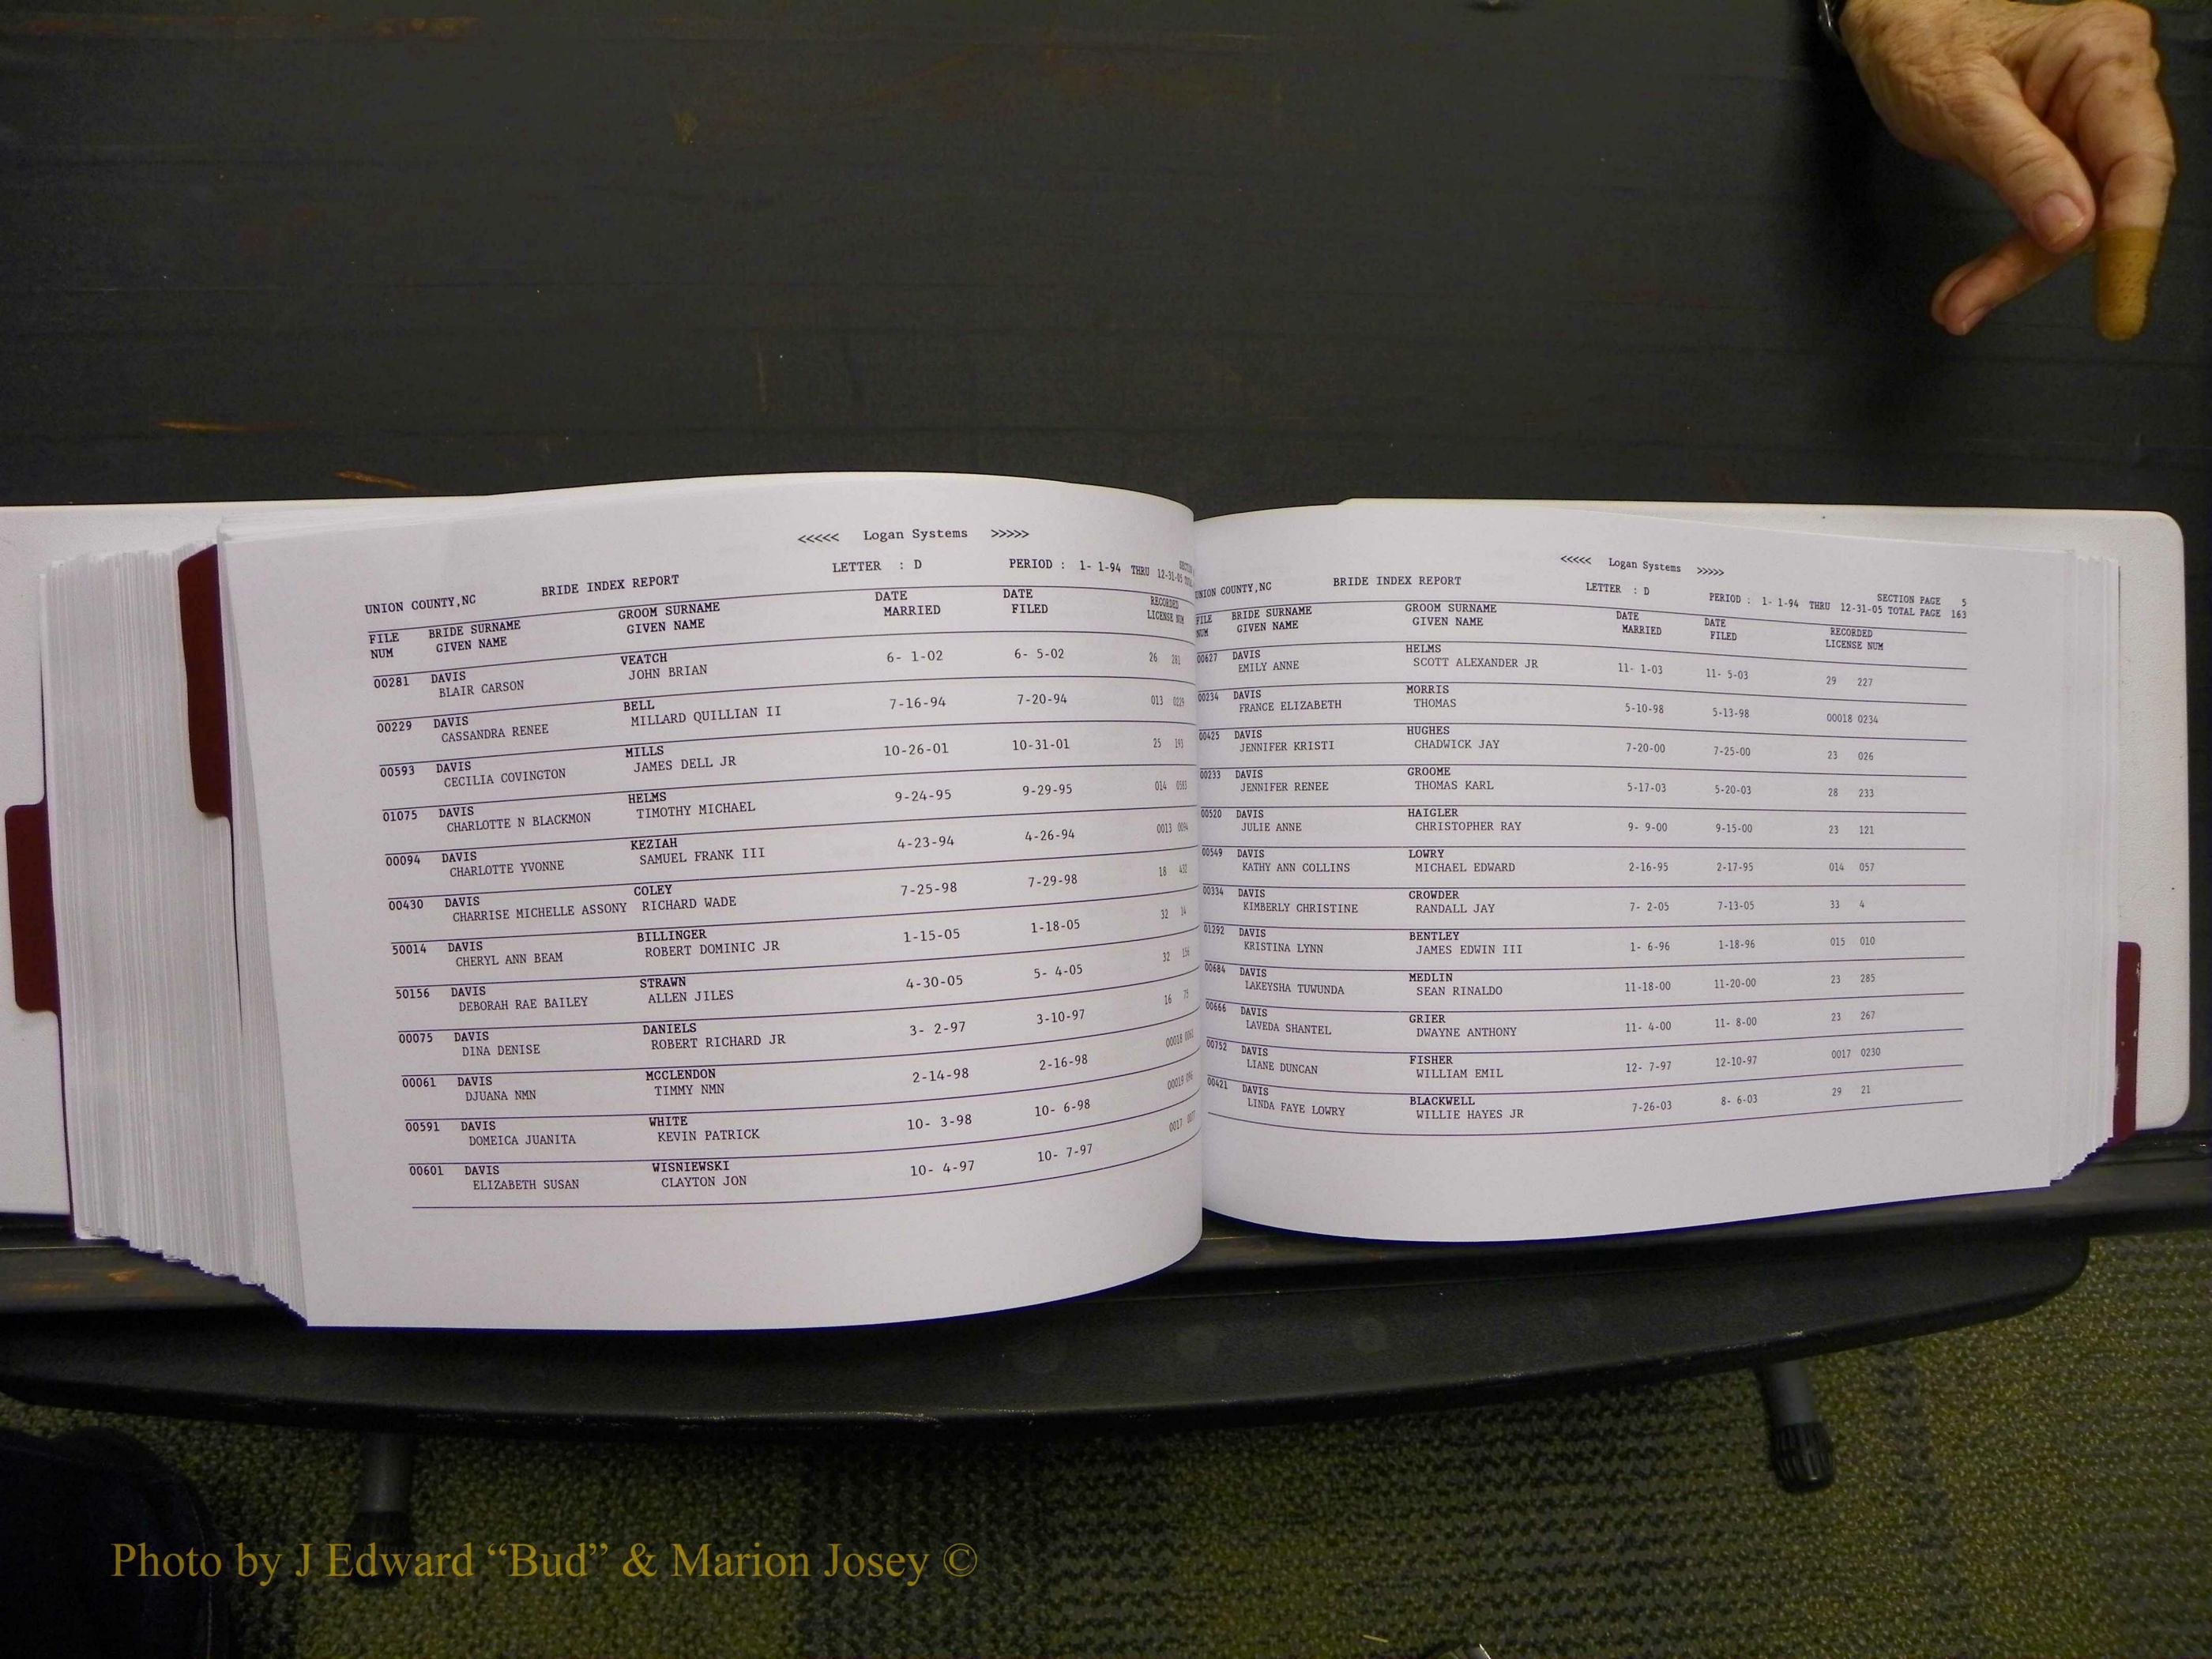 <<<<< Logan Systems >>>>>
UNION COUNTY,NC BRIDE INDEX REPORT LETTER : D PERIOD : 1- 1-94 THRU 12-31-05
FILE NUM BRIDE SURNAME GIVEN NAME GROOM SURNAME GIVEN NAME DATE MARRIED DATE FILED RECORDED LICENSE NUM
00281 DAVIS VEATCH 6- 1-02 6- 5-02 26
BLAIR CARSON JOHN BRIAN
00229 DAVIS BELL 7-16-94 7-20-94 013 0229
CASSANDRA RENEE MILLARD QUILLIAN II
00593 DAVIS MILLS 10-26-01 10-31-01 25
CECILIA COVINGTON JAMES DELL JR
01075 DAVIS HELMS 9-24-95 9-29-95 014
CHARLOTTE N BLACKMON TIMOTHY MICHAEL
00094 DAVIS KEZIAH 4-23-94 4-26-94 0013 0094
CHARLOTTE YVONNE SAMUEL FRANK III
00430 DAVIS COLEY 7-25-98 7-29-98 18
CHARRISE MICHELLE ASSONY RICHARD WADE
50014 DAVIS BILLINGER 1-15-05 1-18-05 32 14
CHERYL ANN BEAM ROBERT DOMINIC JR
50156 DAVIS STRAWN 4-30-05 5- 4-05 32 156
DEBORAH RAE BAILEY ALLEN JILES
00075 DAVIS DANIELS 3- 2-97 3-10-97 16 75
DINA DENISE ROBERT RICHARD JR
00061 DAVIS MCCLENDON 2-14-98 2-16-98 00018
DJUANA NMN TIMMY NMN
00591 DAVIS WHITE 10- 3-98 10- 6-98 00019
DOMEICA JUANITA KEVIN PATRICK
00601 DAVIS WISNIEWSKI 10- 4-97 10- 7-97 0017
ELIZABETH SUSAN CLAYTON JON
<<<<< Logan Systems >>>>>
UNION COUNTY,NC BRIDE INDEX REPORT LETTER : D PERIOD : 1- 1-94 THRU 12-31-05 SECTION PAGE 5 TOTAL PAGE 163
FILE NUM BRIDE SURNAME GIVEN NAME GROOM SURNAME GIVEN NAME DATE MARRIED DATE FILED RECORDED LICENSE NUM
00627 DAVIS HELMS 11- 1-03 11- 5-03 29 227
EMILY ANNE SCOTT ALEXANDER JR
00234 DAVIS MORRIS 5-10-98 5-13-98 00018 0234
FRANCE ELIZABETH THOMAS
00425 DAVIS HUGHES 7-20-00 7-25-00 23 026
JENNIFER KRISTI CHADWICK JAY
00233 DAVIS GROOME 5-17-03 5-20-03 28 233
JENNIFER RENEE THOMAS KARL
00520 DAVIS HAIGLER 9- 9-00 9-15-00 23 121
JULIE ANNE CHRISTOPHER RAY
00549 DAVIS LOWRY 2-16-95 2-17-95 014 057
KATHY ANN COLLINS MICHAEL EDWARD
00334 DAVIS CROWDER 7- 2-05 7-13-05 33 4
KIMBERLY CHRISTINE RANDALL JAY
01292 DAVIS BENTLEY 1- 6-96 1-18-96 015 010
KRISTINA LYNN JAMES EDWIN III
00684 DAVIS MEDLIN 11-18-00 11-20-00 23 285
LAKEYSHA TUWUNDA SEAN RINALDO
00666 DAVIS GRIER 11- 4-00 11- 8-00 23 267
LAVEDA SHANTEL DWAYNE ANTHONY
00752 DAVIS FISHER 12- 7-97 12-10-97 0017 0230
LIANE DUNCAN WILLIAM EMIL
00421 DAVIS BLACKWELL 7-26-03 8- 6-03 29 21
LINDA FAYE LOWRY WILLIE HAYES JR
Photo by J Edward “Bud” & Marion Josey ©